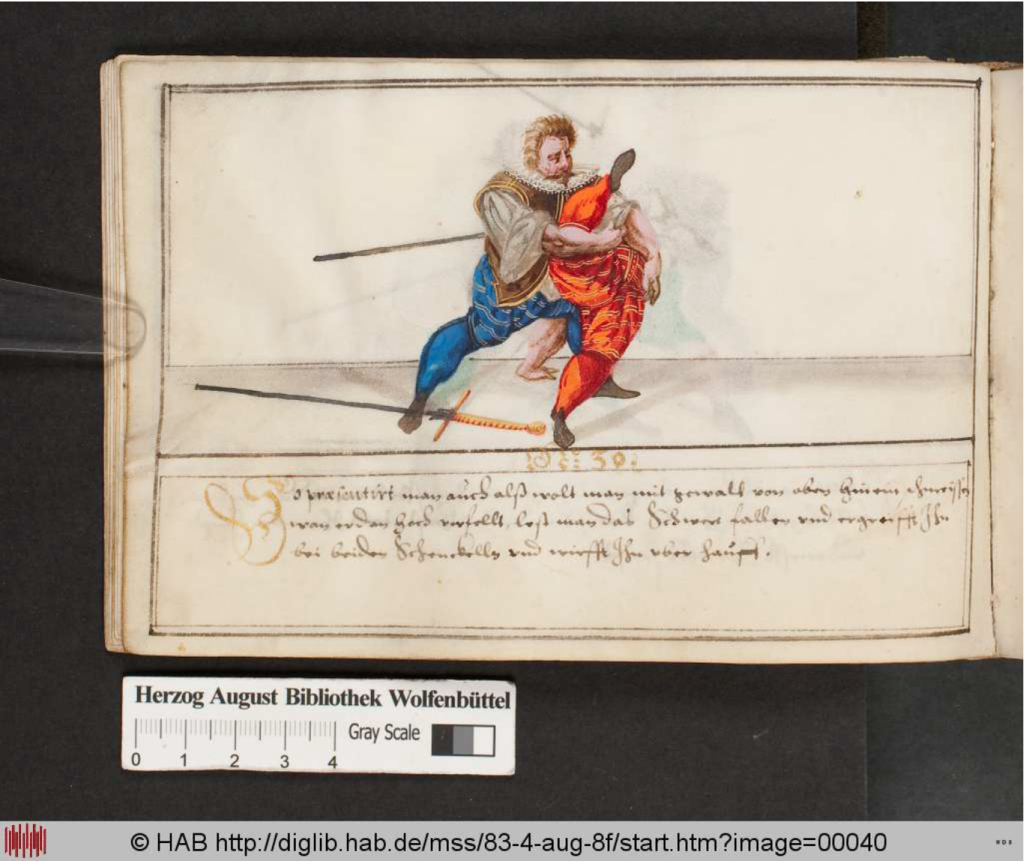 No: 39.
So præsentirt man auch alß wolt man mit gewalt von oben hinein
wan er dan hoch verfellt, lest man das Schwert fallen vnd ergreifft Ihn
bei beiden Schenckelln vnd wirfft Ihn vber hauff.
Herzog August Bibliothek Wolfenbüttel
Gray Scale
0 1 2 3 4
© HAB http://diglib.hab.de/mss/83-4-aug-8f/start.htm?image=00040